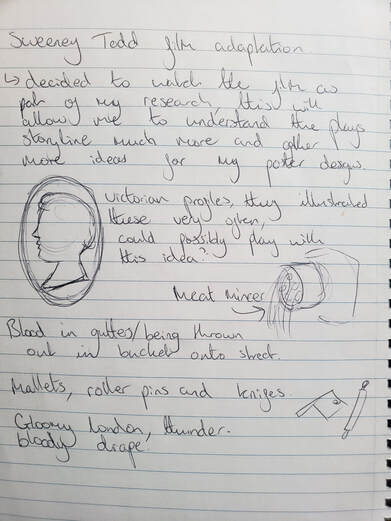 Sweeney Todd film adaptation
↳ decided to watch the film as
part of my research, this will
allow me to understand the plays
storyline much more and gather
more ideas for my poster design.
Victorian profiles, they illustrated
these very often,
could possibly play with
this idea?
Meat mincer
Blood in gutter/being thrown
out in bucket onto street.
Mallets, roller pins and knifes.
Gloomy London, thunder.
bloody drape.